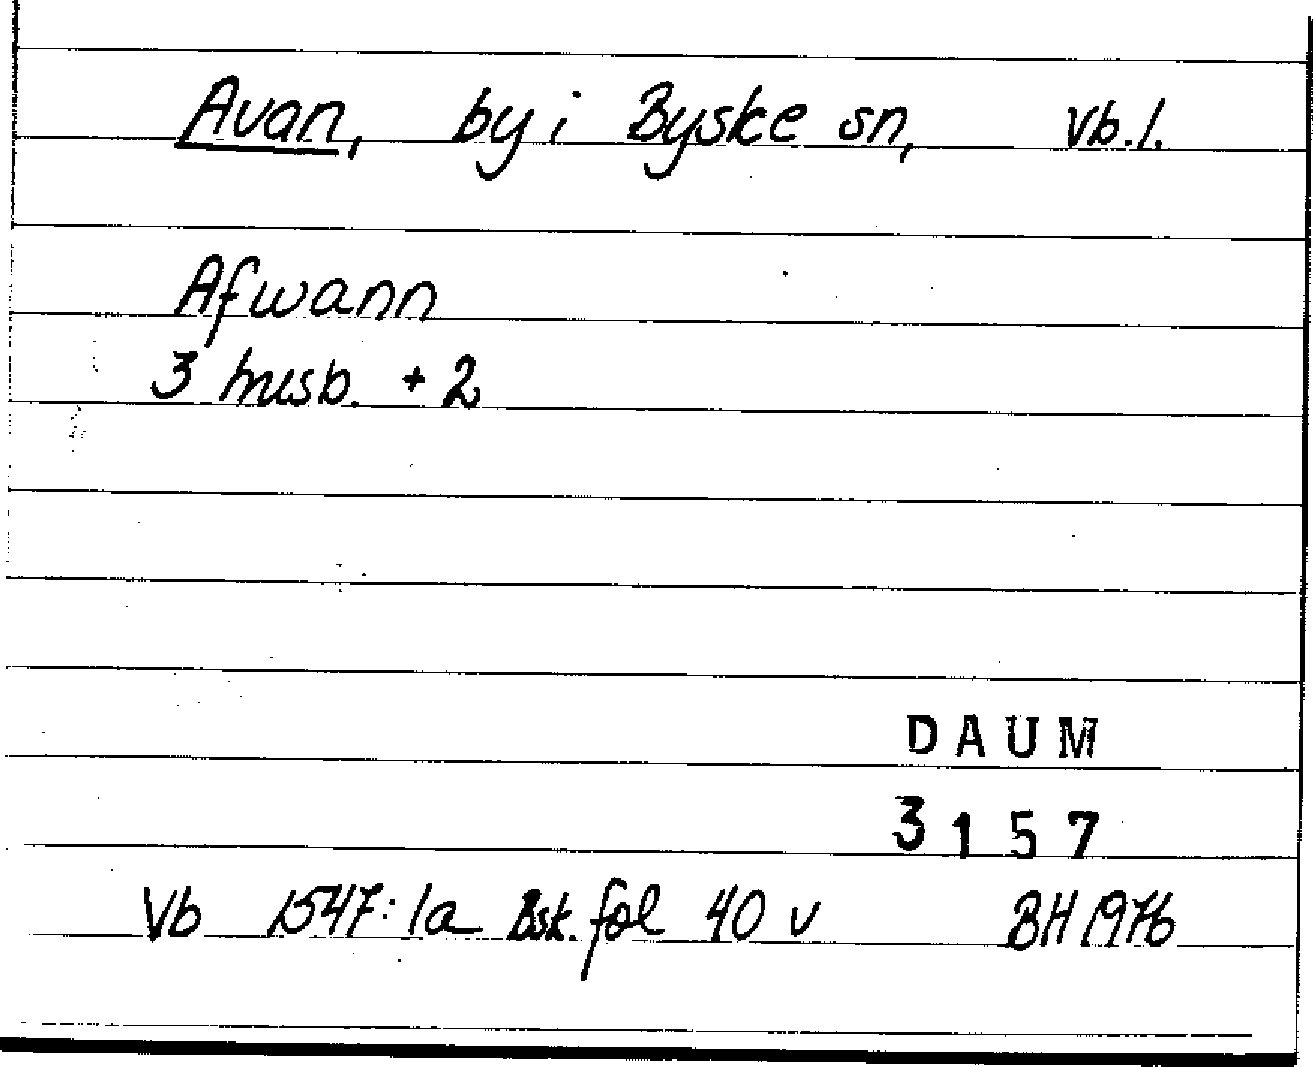 Avan, by i Byske sn, Vb.l.
Afwann
3 husb. + 2
DAUM
3157
Vb 1547:1a Bsk. fol 40 v BH 1976